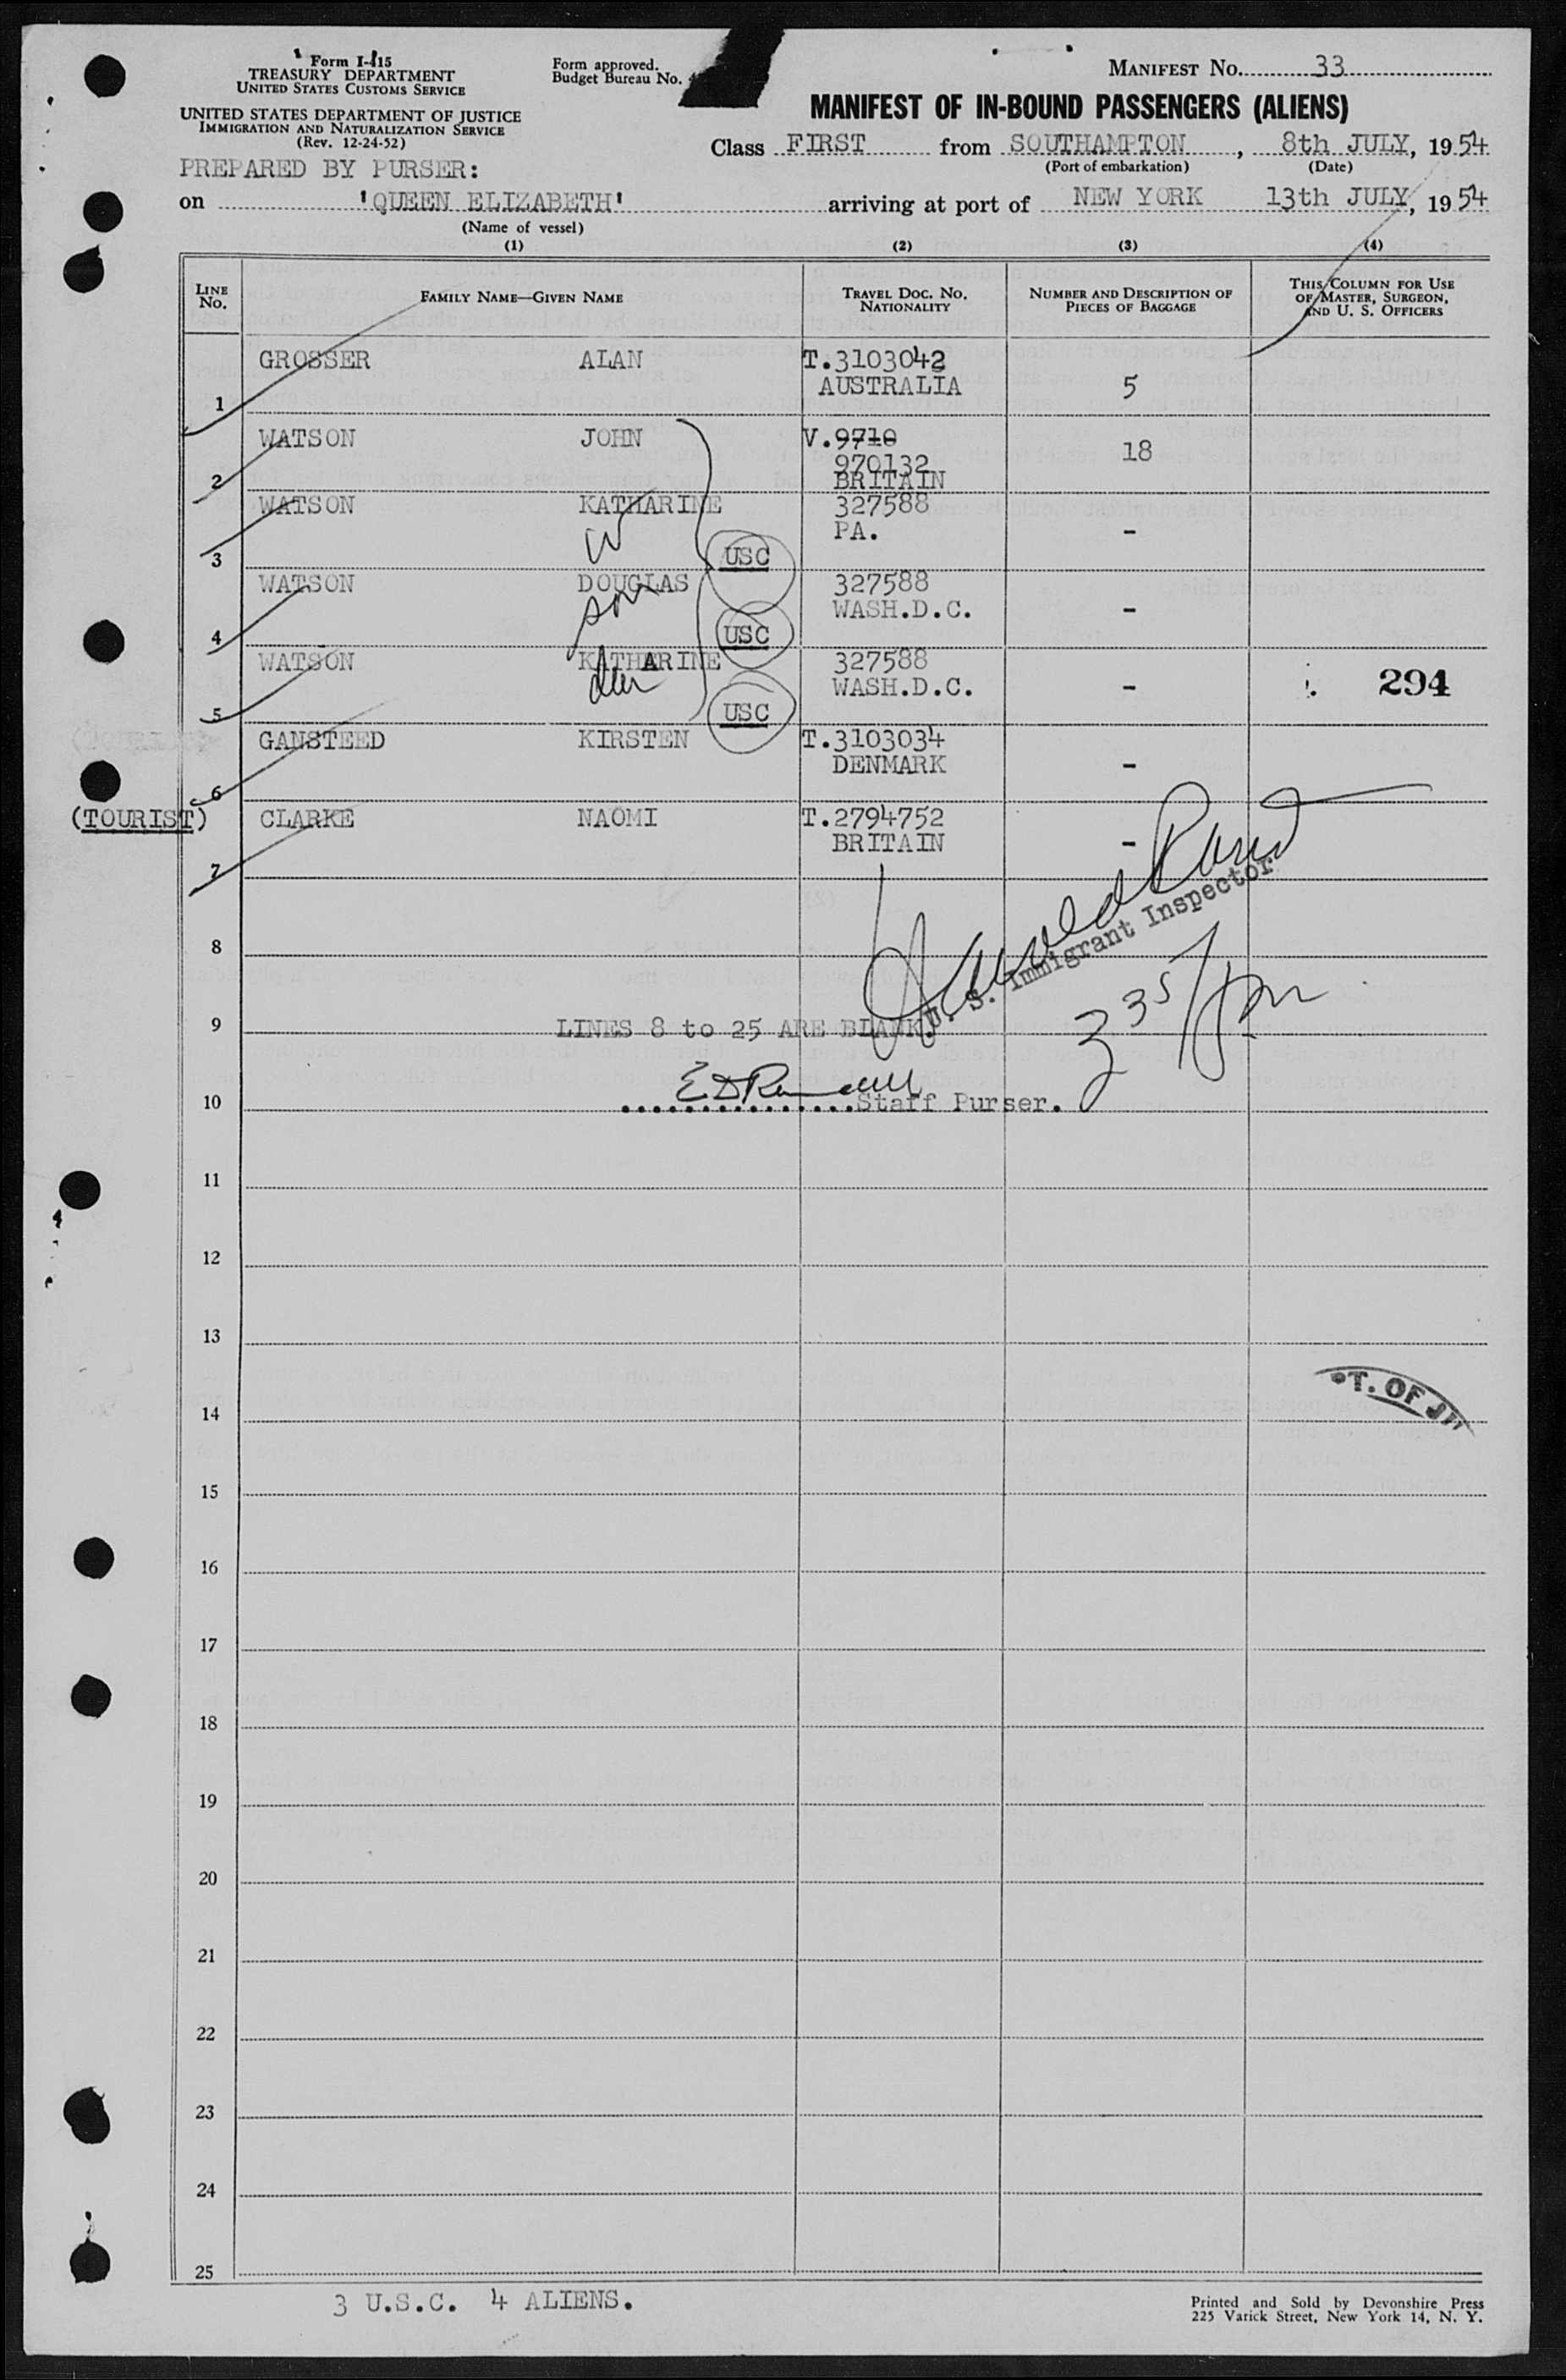 Form I-415
TREASURY DEPARTMENT
UNITED STATES CUSTOMS SERVICE
UNITED STATES DEPARTMENT OF JUSTICE
IMMIGRATION AND NATURALIZATION SERVICE
(Rev. 12-24-52)
Form approved.
Budget Bureau No.
MANIFEST No. 33
MANIFEST OF IN-BOUND PASSENGERS (ALIENS)
Class FIRST from SOUTHAMPTON, 8th JULY, 1954
(Port of embarkation) (Date)
PREPARED BY PURSER:
on 'QUEEN ELIZABETH' arriving at port of NEW YORK 13th JULY, 1954
(Name of vessel)
(1) (2) (3) (4)
LINE No. FAMILY NAME—GIVEN NAME TRAVEL DOC. NO. NATIONALITY NUMBER AND DESCRIPTION OF PIECES OF BAGGAGE THIS COLUMN FOR USE OF MASTER, SURGEON, AND U. S. OFFICERS
GROSSER ALAN T.3103042
1 AUSTRALIA 5
WATSON JOHN V.9710
2 970132 18
BRITAIN
WATSON KATHARINE 327588
W PA. -
3 USC
WATSON DOUGLAS 327588
son WASH.D.C. -
4 USC
WATSON KATHARINE 327588
dau WASH.D.C. - 294
5 USC
GANSTEED KIRSTEN T.3103034
DENMARK -
6
(TOURIST) CLARKE NAOMI T.2794752
BRITAIN -
7
U. S. Immigrant Inspector
8
3 35/pm
9 LINES 8 to 25 ARE BLANK
10 ...............Staff Purser.
11
12
13
T. OF JU
14
15
16
17
18
19
20
21
22
23
24
25
3 U.S.C. 4 ALIENS.
Printed and Sold by Devonshire Press
225 Varick Street, New York 14, N. Y.